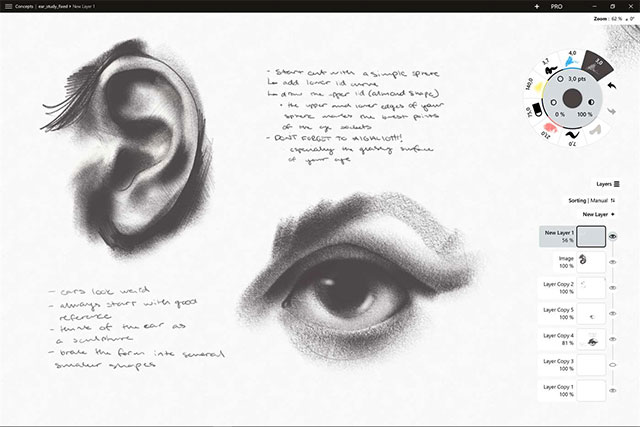 Concepts | ear_study_fixed › New Layer 1
+ PRO
Zoom: 62 % 0°
- Start out with a simple sphere
add lower lid curve
draw the upper lid (almond shape)
• the upper and lower edges of your
sphere marks the lowest points
of the eye sockets
- DON'T FORGET TO HIGHLIGHT!!
- especially the glassy surface
of your eye
4,0
3,7
3,0 pts
140,0
15,0
0 % 100 %
21,0
7,0
Layers
Sorting | Manual
New Layer +
New Layer 1
56 %
Image
100 %
Layer Copy 2
100 %
Layer Copy 5
100 %
Layer Copy 4
81 %
Layer Copy 3
100 %
Layer Copy 1
100 %
- ears look weird
- always start with good
reference
- think of the ear as
a sculpture
- brake the form into several
smaller shapes